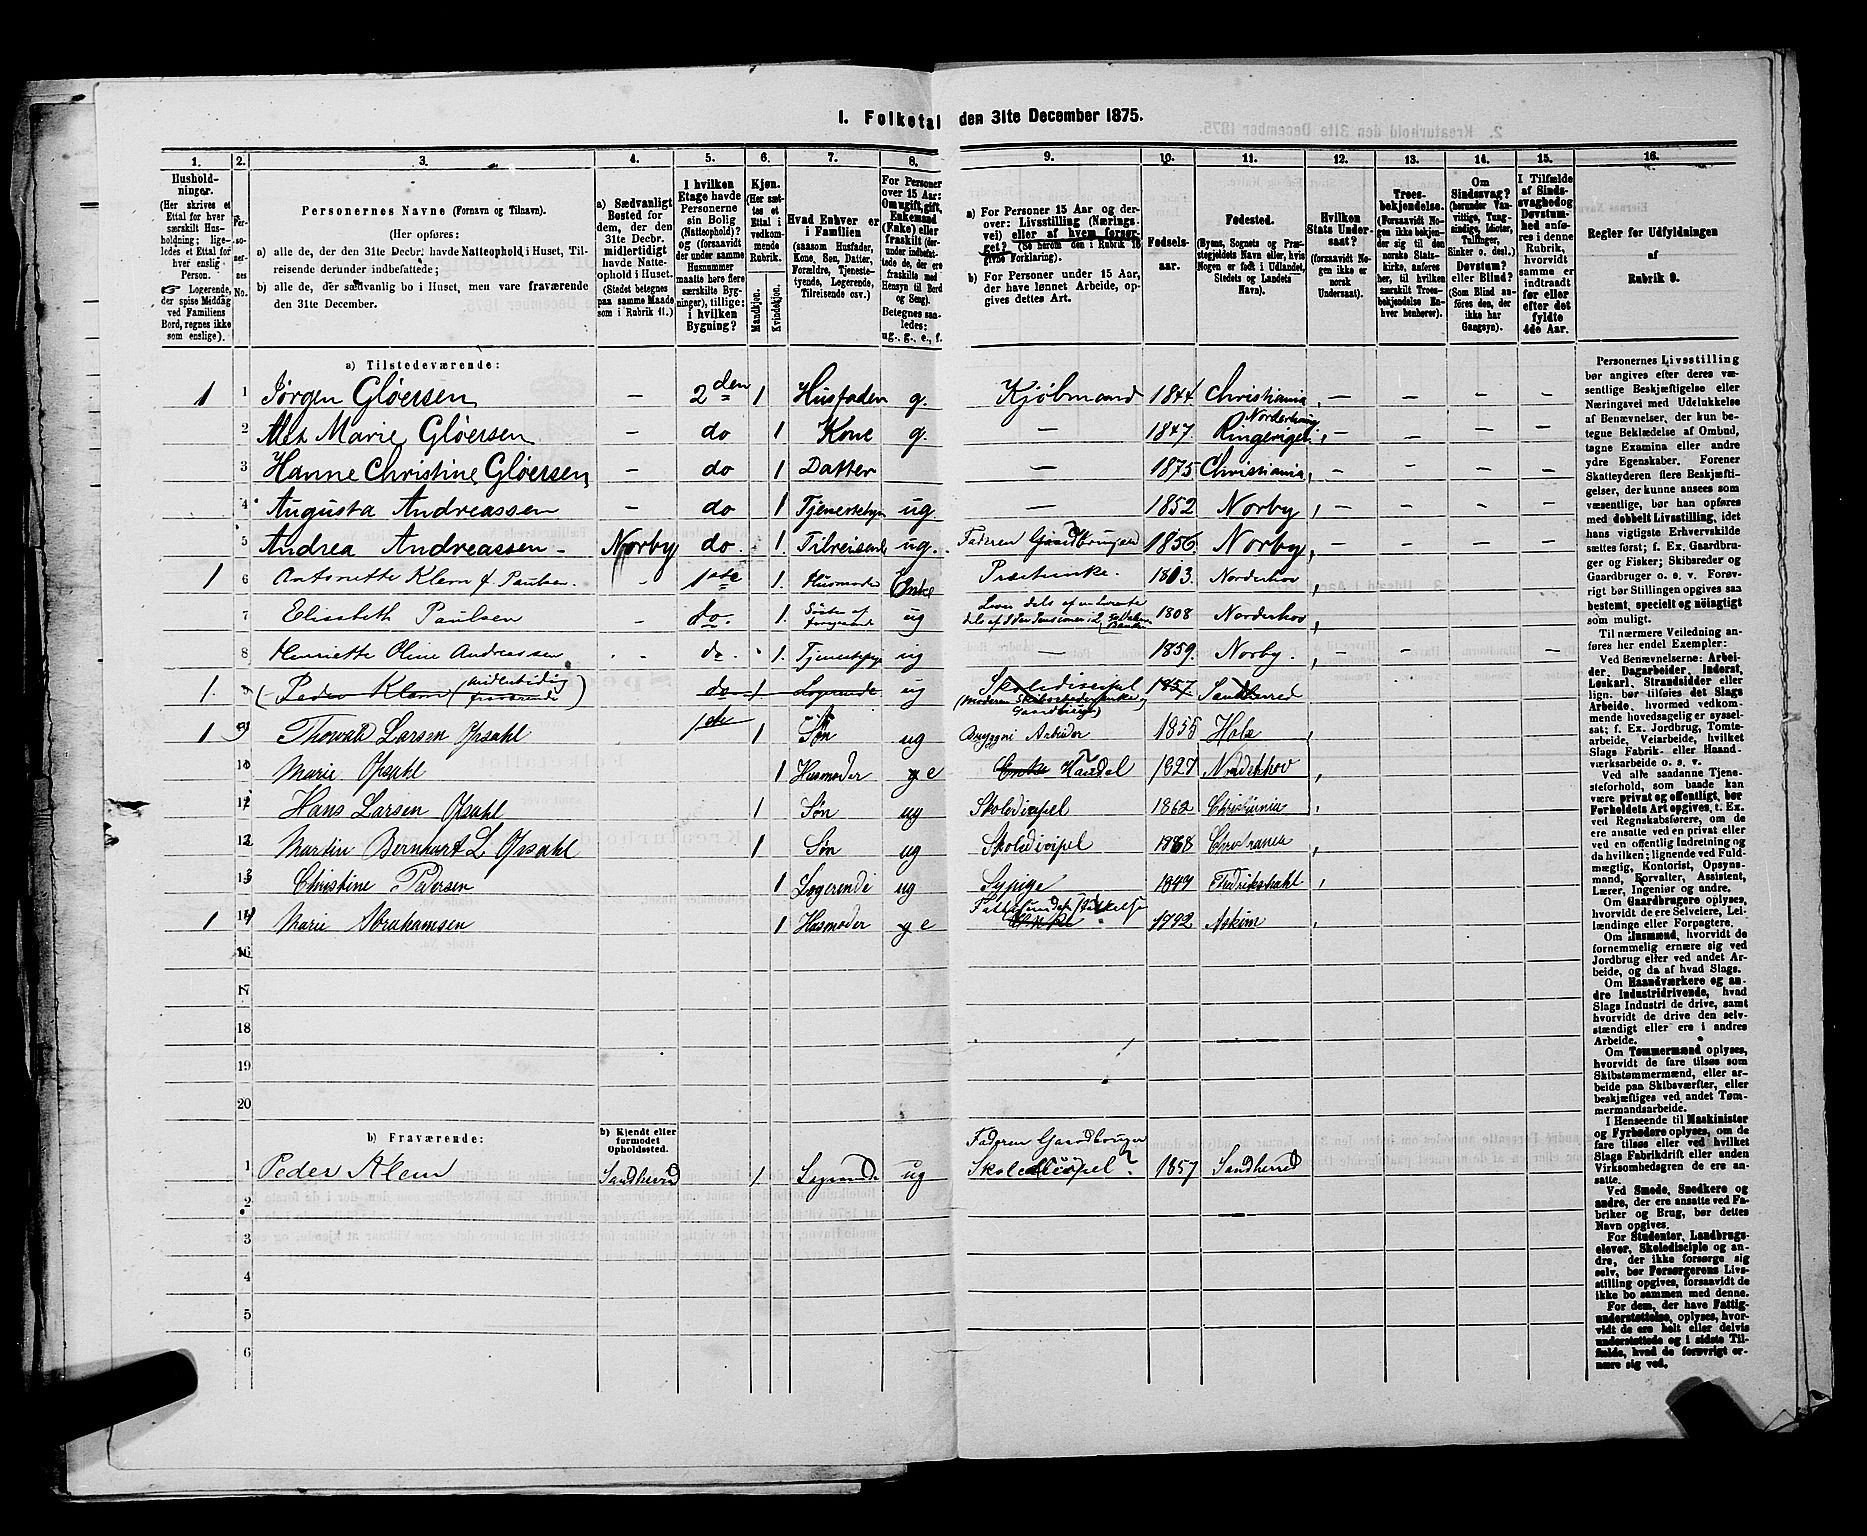 1. Folketal den 31te December 1875.
1. 2. 3. 4. 5. 6. 7. 8. 9. 10. 11. 12. 13. 14. 15. 16.
Husholdninger.
(Her skrives et Ettal for hver særskilt Husholdning; ligeledes et Ettal for hver enslig Person.
Logerende, der spise Middag ved Familiens Bord, regnes ikke som enslige).
Personernes No.
Personernes Navne (Fornavn og Tilnavn).
(Her opføres:
a) alle de, der den 31te Decbr. havde Natteophold i Huset, Tilreisende derunder indbefattede;
b) alle de, der sædvanlig bo i Huset, men vare fraværende den 31te December.
a) Sædvanligt Bosted for dem, der den 31te Decbr. midlertidigt havde Natteophold i Huset.
(Stedet betegnes paa samme Maade som i Rubrik 11.)
I hvilken Etage havde Personerne sin Bolig (Natteophold)? og (forsaavidt der under samme Husnummer maatte høre flere særskilte Bygninger), tillige: i hvilken Bygning?
Kjøn. (Her sættes et Ettal i vedkommende Rubrik.
Mandkjøn. Kvindekjøn.
Hvad Enhver er i Familien
(saasom Husfader, Kone, Søn, Datter, Forældre, Tjenestetyende, Logerende, Tilreisende osv.)
For Personer over 15 Aar: Om ugift, gift, Enkemand (Enke) eller fraskilt (derunder indbefattede de, der ere fraskilte med Hensyn til Bord og Seng).
Betegnes saaledes: ug., g., e., f.
a) For Personer 15 Aar og derover: Livsstilling (Næringsvei) eller af hvem forsørget? (Se herom den i Rubrik 16 givne Forklaring).
b) For Personer under 15 Aar, der have lønnet Arbeide, opgives dettes Art.
Fødselsaar.
Fødested.
(Byens, Sognets og Præstegjeldets Navn eller, hvis Nogen er født i Udlandet, Stedets og Landets Navn).
Hvilken Stats Undersaat?
(forsaavidt Nogen ikke er norsk Undersaat).
Troesbekjendelse.
(Forsaavidt Nogen ikke bekjender sig til den norske Statskirke, anføres her, til hvilken særskilt Troesbekjendelse Enhver henhører).
Om Sindssvag? (herunder Vanvittige, Tungsindige, Idioter, Tullinger, Sinker o. desl.)
Døvstum? eller Blind?
(Som Blind anføres den, der ikke har Gangsyn).
I Tilfælde af Sindssvaghed og Døvstumhed anføres i denne Rubrik, hvorvidt samme er indtraadt før eller efter det fyldte 4de Aar.
Regler for Udfyldningen af Rubrik 9.
a) Tilstedeværende:
1 1 Jørgen Gløersen – 2den 1 Husfader g. Kjøbmand 1844 Christiania, – – – –
2 Alet Marie Gløersen – do 1 Kone g. – 1847. Norderhoug Ringerige, – – – –
3 Hanne Christine Gløersen – do 1 Datter – 1875 Christiania, – – – –
4 Augusta Andreassen – do 1 Tjenestetyn ug. – 1852 Norby, – – – –
5 Andrea Andreassen – Norby do 1 Tilreisende ug. Faderen Gaardbruger 1856. Norby,
1 6 Antonette Klem f. Paulsen. – 1ste 1. Husmoder Enke Præsteenke. 1813. Norderhov,
7 Elisabeth Paulsen – do. 1. Søster af foregaaende ug 1808 Norderhov,
8 Henriette Oline Andreassen – do. 1. Tjenestepige ug – 1859. Norby. – – – –
1. 9 (Peder Klem (midlertidig fraværende) do 1 Logerende ug Skoledisipel 1857 Sandherred
1 Thorvald Larsen Opsahl 1ste 1 Søn ug Bryggeri Arbeider 1855 Hole,
Marie Opsahl 1 Husmoder g e Enke Handel 1827 Norderhov,
Hans Larsen Opsahl 1 Søn ug Skoledisipel 1862 Christiania,
Martin Bernhart L. Opsahl 1 Søn ug Skoledisipel 1868 Christiania,
Christine Pedersen 1 Logerende ug Sypige 1849 Fredrikshald,
1 Marie Abrahamsen 1 Husmoder g e Enke 1792 Askim,
16
17
18
19
20
b) Fraværende:
b) Kjendt eller formodet Opholdssted.
Faderen Gaardbruger
1 Peder Klem Sandherred 1 Logerende ug Skoledisipel? 1857 Sandherred
2
3
4
5
6
Personernes Livsstilling bør angives efter deres væsentlige Beskjæftigelse eller Næringsvei med Udelukkelse af Benævnelser, der kun betegne Beklædelse af Ombud, tagne Examina eller andre ydre Egenskaber. Forener Skatteyderen flere Beskjæftigelser, der kunne ansees som væsentlige, bør han opføres med dobbelt Livsstilling, idet hans vigtigste Erhvervskilde sættes først; f. Ex. Gaardbruger og Fisker; Skibsreder og Gaardbruger o. s. v. Forøvrigt bør Stillingen opgives saa bestemt, specielt og nöiagtigt som muligt.
Til nærmere Veiledning anføres her endel Exempler:
Ved Benævnelserne: Arbeider, Dagarbeider, Inderst, Løskarl, Strandsidder eller lign. bør tilføies det Slags Arbeide, hvormed vedkommende hovedsagelig er sysselsat; f. Ex. Jordbrug, Tomtearbeide, Veiarbeide, hvilket Slags Fabrik- eller Haandværksarbeide o. s. v.
Ved alle saadanne Tjenesteforhold, som baade kan være privat og offentligt, bør Forholdets Art opgives, t. Ex. ved Regnskabsførere, om de ere ansatte ved en privat eller ved en offentlig Indretning og da hvilken; lignende ved Fuldmægtig, Kontorist, Opsynsmand, Forvalter, Assistent, Lærer, Ingeniør og andre.
Om Gaardbrugere oplyses, hvorvidt de ere Selveiere, Leilændinge eller Forpagtere.
Om Husmænd, hvorvidt de fornemmelig ernære sig ved Jordbrug eller ved andet Arbeide, og da af hvad Slags.
Om Haandværkere og andre Industridrivende, hvad Slags Industri de drive, samt hvorvidt de drive den selvstændigt eller ere i andres Arbeide.
Om Tømmermænd oplyses, hvorvidt de fare tilsøs som Skibstømmermænd, eller arbeide paa Skibsværfter, eller beskjæftiges ved andet Tømmermandsarbeide.
I Henseende til Maskinister og Fyrbødere oplyses, om de fare tilsøs eller ved hvilket Slags Fabrikdrift eller anden Virksomhedsgren de ere ansatte.
Ved Smede, Snedkere og andre, der ere ansatte ved Fabriker og Brug, bør dettes Navn opgives.
For Studenter, Landbrugselever, Skoledisciple og andre, der ikke forsørge sig selv, bør Forsørgerens Livsstilling opgives, forsaavidt de ikke bo sammen med denne.
For dem, der have Fattigunderstøttelse, oplyses, hvorvidt de ere helt eller delvis understøttede og i sidste Tilfælde, hvad de forøvrigt ernære sig ved.